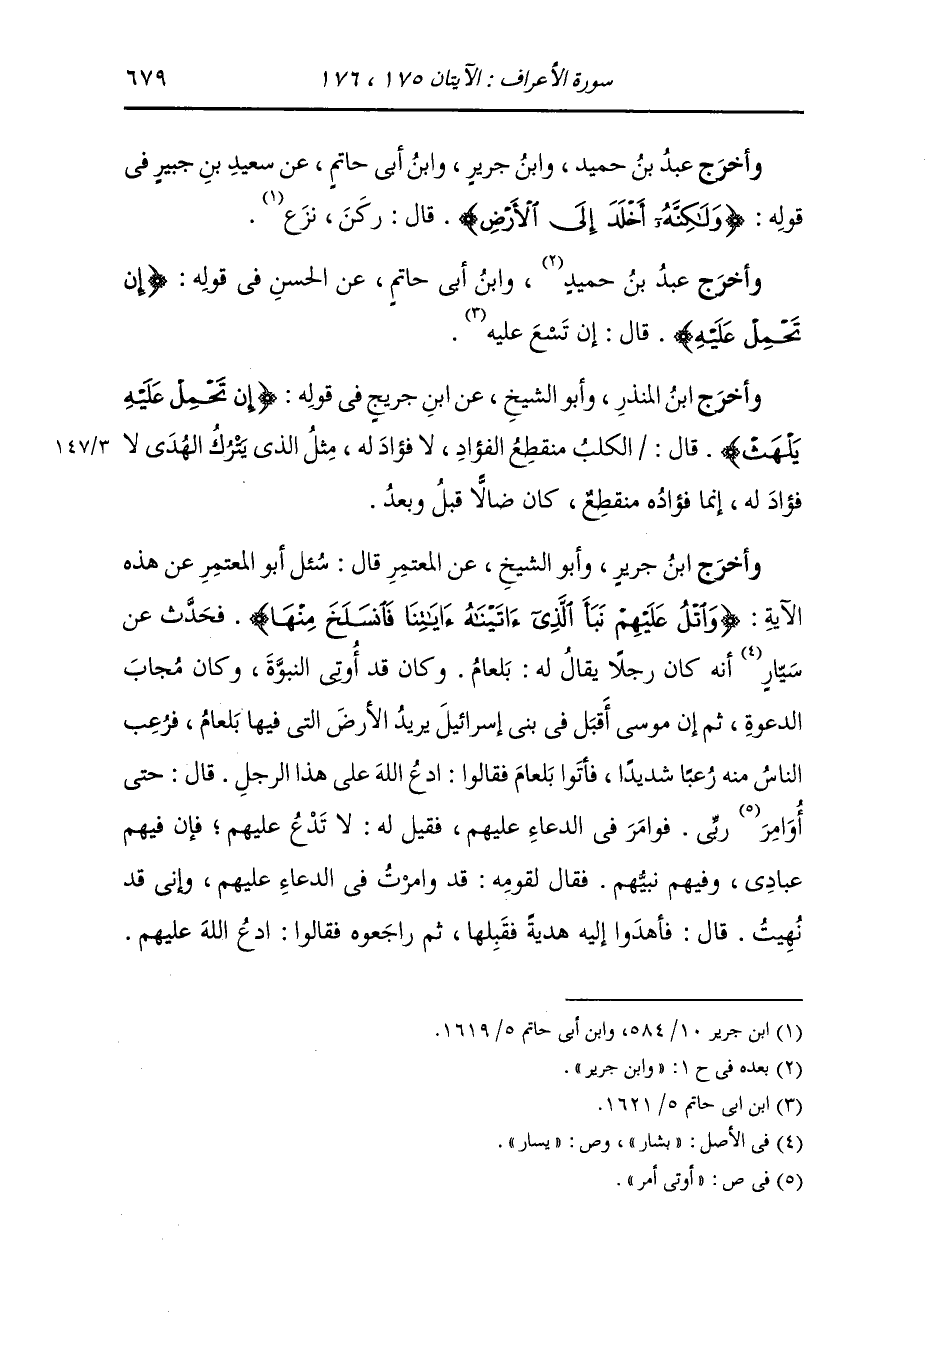 سورة الأعراف : الآيتان ١٧٥ ، ١٧٦ ٦٧٩
وأخرَج عبدُ بنُ حميد ، وابنُ جريرٍ ، وابنُ أبى حاتمٍ ، عن سعيدِ بنِ جبيرٍ فى
قولِه : ﴿وَلَٰكِنَّهُۥٓ أَخْلَدَ إِلَى ٱلْأَرْضِ﴾ . قال : ركَنَ ، نزَع(١) .
وأخرَج عبدُ بنُ حميدٍ(٢) ، وابنُ أبى حاتمٍ ، عن الحسنِ فى قولِه : ﴿إِن
تَحْمِلْ عَلَيْهِ﴾ . قال : إن تَسْعَ عليه(٣) .
وأخرَج ابنُ المنذرِ ، وأبو الشيخِ ، عن ابنِ جريجٍ فى قولِه : ﴿إِن تَحْمِلْ عَلَيْهِ
يَلْهَثْ﴾ . قال : / الكلبُ منقطِعُ الفؤادِ ، لا فؤادَ له ، مِثلُ الذى يَتْرُكُ الهُدَى لا ١٤٧/٣
فؤادَ له ، إنما فؤادُه منقطِعٌ ، كان ضالًّا قبلُ وبعدُ .
وأخرَج ابنُ جريرٍ ، وأبو الشيخِ ، عن المعتمِرِ قال : سُئل أبو المعتمِرِ عن هذه
الآيةِ : ﴿وَٱتْلُ عَلَيْهِمْ نَبَأَ ٱلَّذِىٓ ءَاتَيْنَٰهُ ءَايَٰتِنَا فَٱنسَلَخَ مِنْهَا﴾ . فحَدَّث عن
سَيّارٍ(٤) أنه كان رجلًا يقالُ له : بَلعامُ . وكان قد أُوتِى النبوَّةَ ، وكان مُجابَ
الدعوةِ ، ثم إن موسى أَقبَل فى بنى إسرائيلَ يريدُ الأرضَ التى فيها بَلعامُ ، فرُعِب
الناسُ منه رُعبًا شديدًا ، فأتَوا بَلعامَ فقالوا : ادعُ اللهَ على هذا الرجلِ . قال : حتى
أُوَامِرَ(٥) ربِّى . فوامَرَ فى الدعاءِ عليهم ، فقيل له : لا تَدْعُ عليهم ؛ فإن فيهم
عبادِى ، وفيهم نبيُّهم . فقال لقومِه : قد وامرْتُ فى الدعاءِ عليهم ، وإنى قد
نُهِيتُ . قال : فأهدَوا إليه هديةً فقَبِلها ، ثم راجَعوه فقالوا : ادعُ اللهَ عليهم .
(١) ابن جرير ١٠/ ٥٨٤، وابن أبى حاتم ٥/ ١٦١٩.
(٢) بعده فى ح ١: « وابن جرير » .
(٣) ابن ابى حاتم ٥/ ١٦٢١.
(٤) فى الأصل : « بشار » ، وص : « يسار » .
(٥) فى ص : « أوتى أمر » .